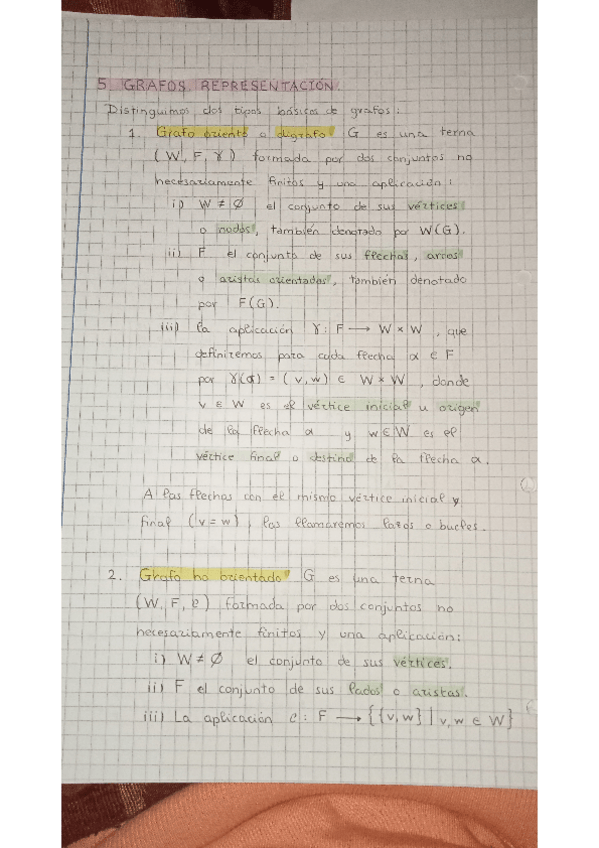 5. GRAFOS. REPRESENTACIÓN.
Distinguimos dos tipos básicos de grafos:
1. Grafo oriento o digrafo G es una terna
(W, F, γ) formada por dos conjuntos no
necesariamente finitos y una aplicación:
i) W ≠ ∅ el conjunto de sus vértices
o nodos, también denotado por W(G).
ii) F el conjunto de sus flechas, arcos
o aristas orientadas, también denotado
por F(G).
iii) la aplicación γ: F → W × W, que
definiremos para cada flecha α ∈ F
por γ(α) = (v, w) ∈ W × W, donde
v ∈ W es el vértice inicial u origen
de la flecha α y w ∈ W es el
vértice final o destino de la flecha α.
A las flechas con el mismo vértice inicial y
final (v = w), las llamaremos lazos o bucles.
2. Grafo no orientado G es una terna
(W, F, e) formada por dos conjuntos no
necesariamente finitos y una aplicación:
i) W ≠ ∅ el conjunto de sus vértices.
ii) F el conjunto de sus lados o aristas.
iii) La aplicación e: F → {{v, w} | v, w ∈ W}